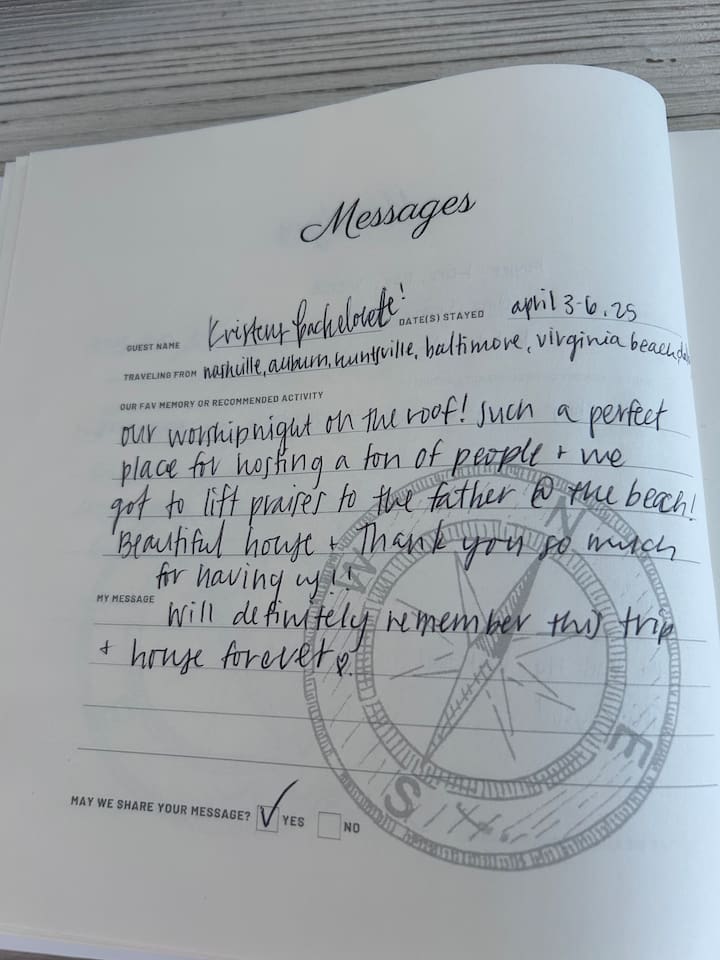 Messages
GUEST NAME Kristens Bachelorette! DATE(S) STAYED april 3-6, 25
TRAVELING FROM nashville, auburn, huntsville, baltimore, virginia beach
OUR FAV MEMORY OR RECOMMENDED ACTIVITY
our worship night on the roof! such a perfect
place for hosting a ton of people + we
got to lift praises to the father @ the beach!
Beautiful house + Thank you so much
for having us!!
MY MESSAGE will definitely remember this trip
+ house forever
N
W
E
S
MAY WE SHARE YOUR MESSAGE? YES NO